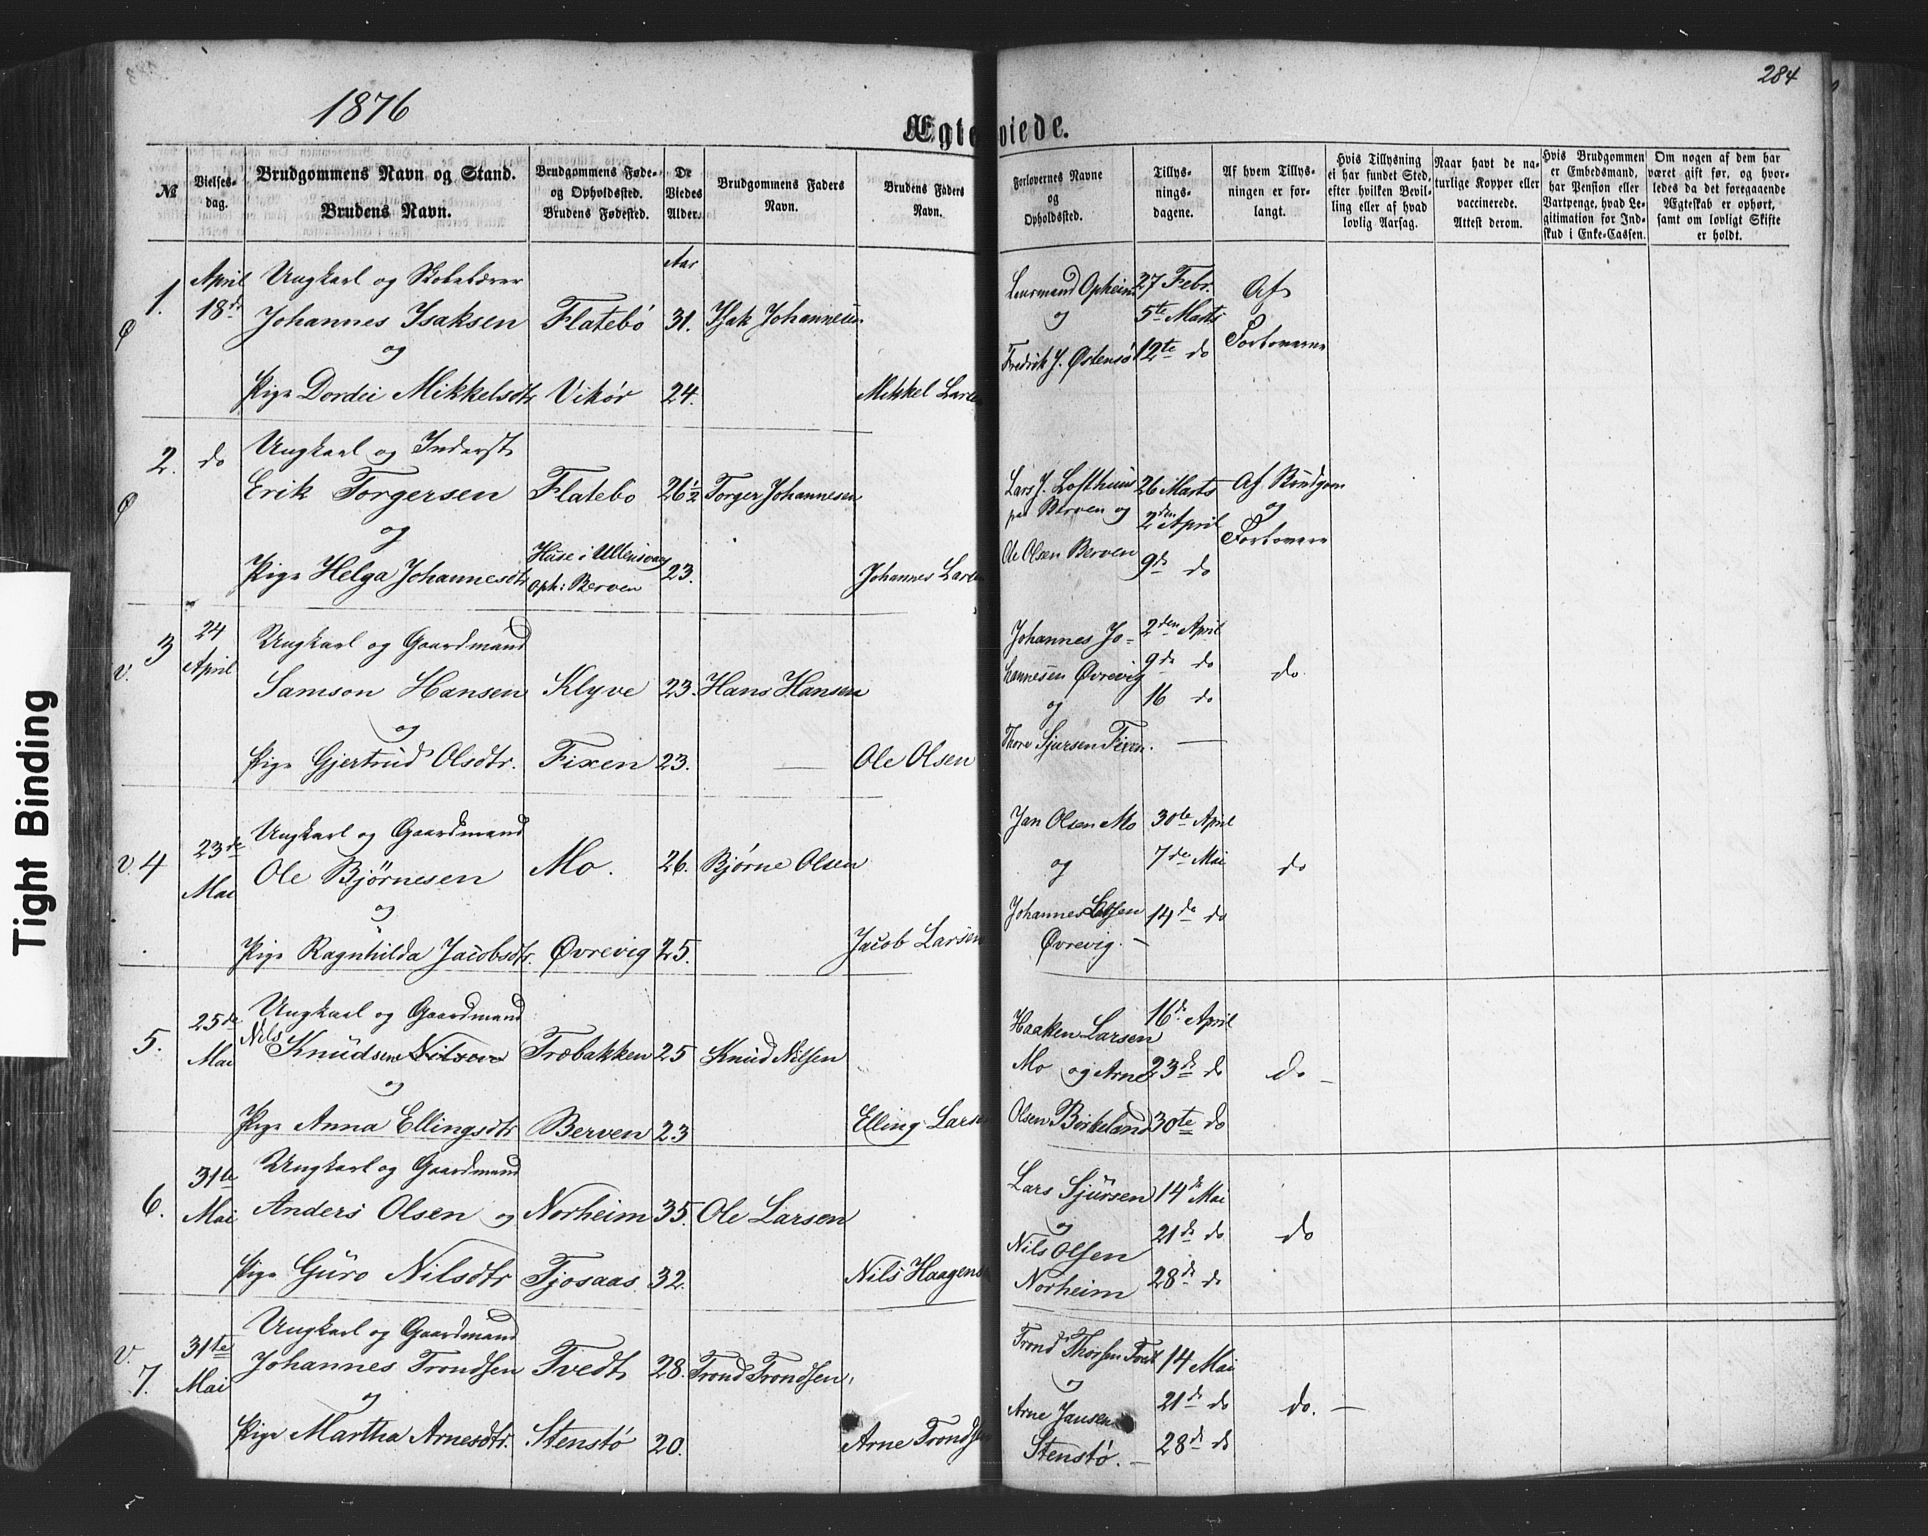 284
1876
Ægteviede.
№
Vielses-
dag.
Brudgommens Navn og Stand.
Brudens Navn.
Brudgommens Føde-
og Opholdssted.
Brudens Fødested.
De
Viedes
Alder.
Brudgommens Faders
Navn.
Brudens Faders
Navn.
Forlovernes Navne
og
Opholdssted.
Tillys-
nings-
dagene.
Af hvem Tillys-
ningen er for-
langt.
Hvis Tillysning
ei har fundet Sted,
efter hvilken Bevil-
ling eller af hvad
lovlig Aarsag.
Naar havt de na-
turlige Kopper eller
vaccinerede.
Attest derom.
Hvis Brudgommen
er Embedsmand,
har Pension eller
Vartpenge, hvad Le-
gitimation for Ind-
skud i Enke-Cassen.
Om nogen af dem har
været gift før, og hvor-
ledes da det foregaaende
Ægteskab er ophørt,
samt om lovligt Skifte
er holdt.
Aar
1. April 18de Ungkarl og
Johannes Isaksen Flatebö 31. Isak Johannesen
og
Pige Dordei Mikkelsdtr Vikör 24. Mikkel Larsen
Lensmand Opheim 27 Febr. Af
og 5te Marts
Fredrik J. Østensö 12te do Forloverne
2. do Ungkarl og Inderst
Erik Torgersen Flatebo 26 1/2 Torger Johannesen
og
Pige Helga Johannesdtr Huse i Ullensvang
Oph: Berven 23. Johannes Larsen
Lars J. Lofthuus 26 Marts Af Brudgom
paa Berven og 2den April og
Forlovere
Ole Olsen Berven 9de do
3 24 April Ungkarl og Gaardmand
Samson Hansen Klyve 23. Hans Hansen
og
Pige Gjertrud Olsdtr. Fixen 23. — Ole Olsen
Johannes Jo- 2den April
hannesen Øvrevig 9de do do.
og 16 do
Thore Sjursen Fixen. —
V. 4 23de Mai Ungkarl og Gaardmand
Ole Bjørnesen Mo. 26. Bjørne Olsen
og
Pige Ragnhilda Jacobsdtr. Øvrevig 25. Jacob Larsen
Jan Olsen Mo 30te April
og 7de Mai do
Johannes 14de do
Øvrevig. —
5. 25de Mai Ungkarl og Gaardmand
Nils Knudsen Træbakken 25 Knud Nilsen
og
Pige Anna Ellingsdtr Berven 23 Elling Larsen
Haaken Larsen 16de April
Mo og Arne 23de do do —
Olsen Birkeland 30te do
6. 31te Mai Ungkarl og Gaardmand
Anders Olsen og Norheim 35. Ole Larsen
Pige Guro Nilsdtr Tjosaas 32. Nils Haagensen
Lars Sjursen 14de Mai
og 21de do do
Nils Olsen
Norheim 28de do
V. 7. 31te Mai Ungkarl og Gaardmand
Johannes Trondsen Tvedt 28. Trond Trondsen
og
Pige Martha Arnesdtr. Stenstø 20. Arne Trondsen
Trond Thorsen Tvet 14 Mai
og 21de do do. —
Arne Jansen
Stenstø. — 28de do
Tight Binding